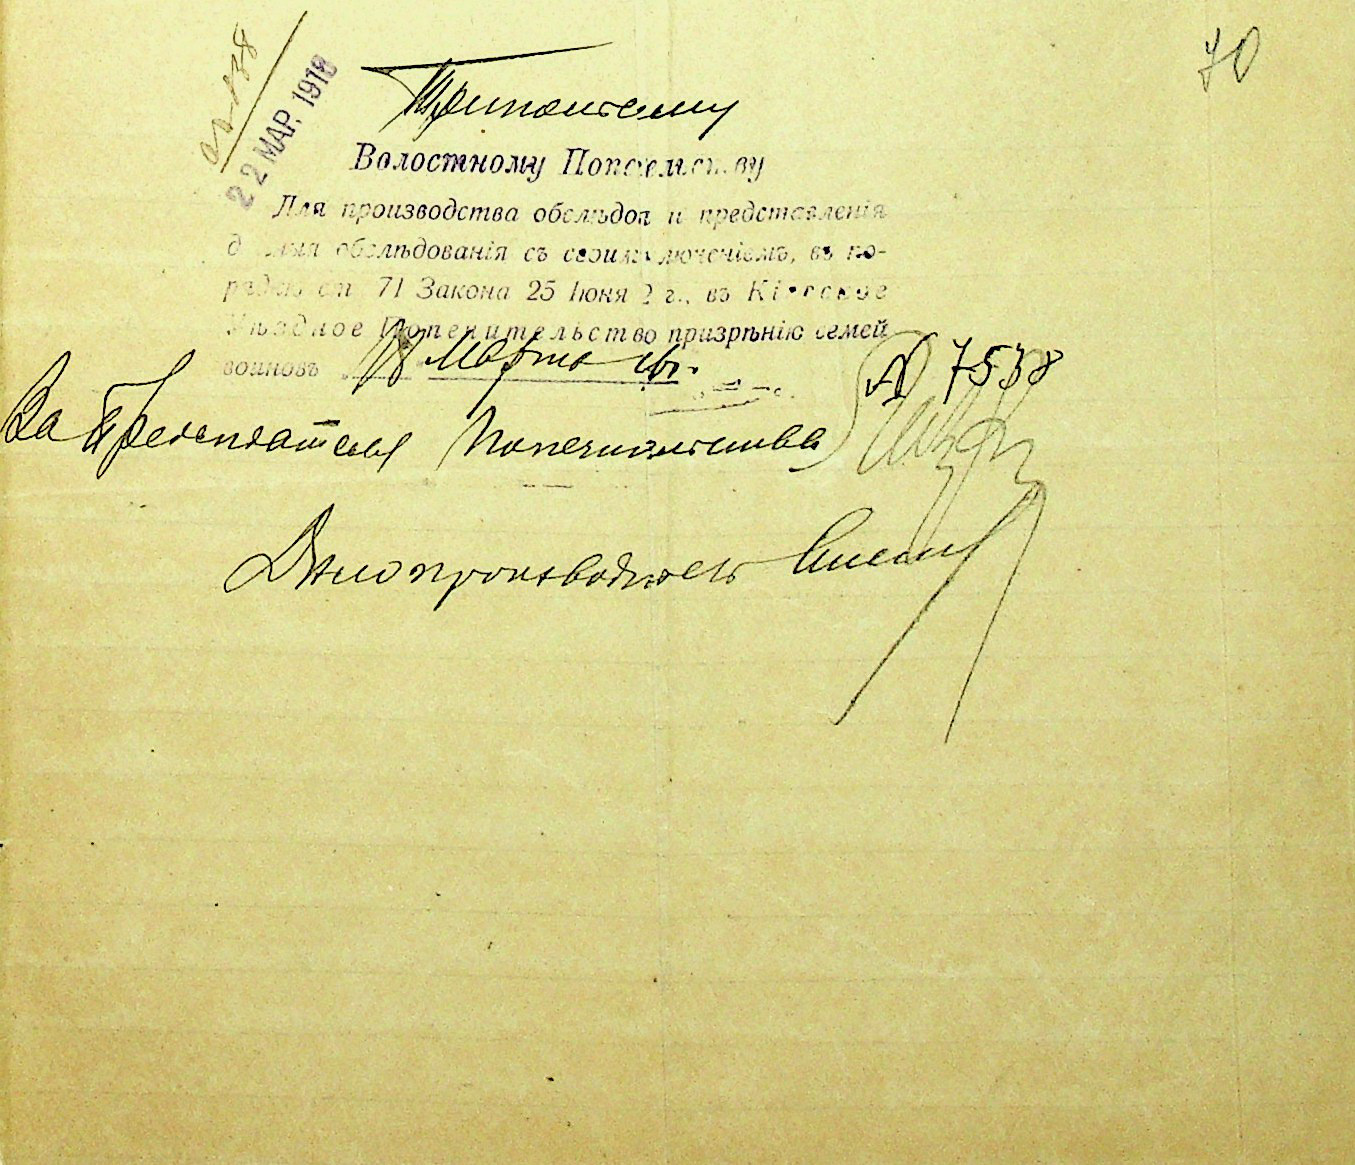 70
22 МАР. 1918
Трипольскому
Волостному Попечительству
Для производства обслѣдов и представленія
обслѣдованія съ своимъ заключеніемъ, въ по-
рядкѣ ст. 71 Закона 25 Іюня 2 г., въ Кіевское
Уѣздное Попечительство призрѣнію семей
воиновъ Марта № 7538
За Предсѣдателя Попечительства
Дѣлопроизводитель